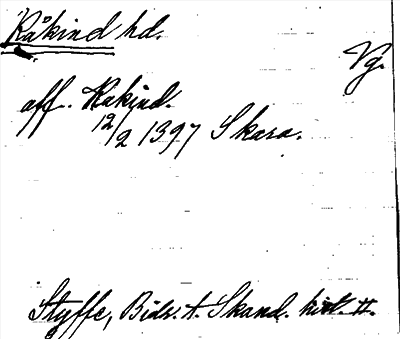 Råkind hd.
Vg.
aff. Rakind.
12/2 1397 Skara.
Styffe, Bidr. t. Skand. hist. II.